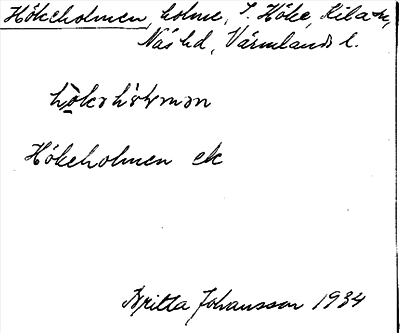 Hökeholmen, holme, S. Höke, Kila sn,
Näs hd, Värmlands l.
Hökeholmen ek
Britta Johansson 1934